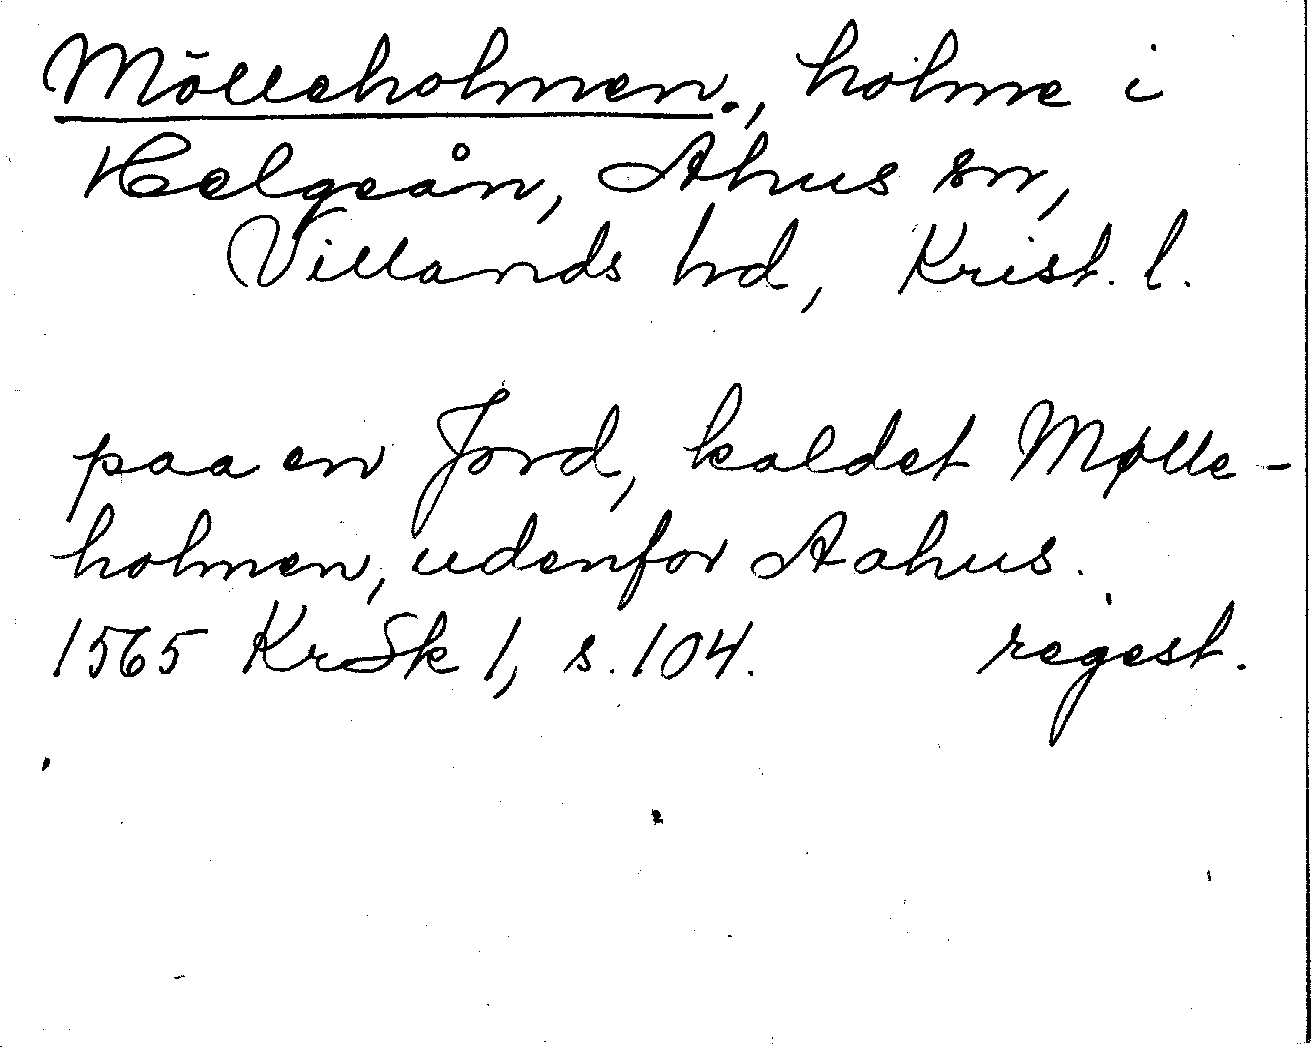 Mölleholmen., holme i
Helgeån, Ahus sn,
Villands hd, Krist. l.
paa en Jord, kaldet Mølle-
holmen, udenfor Aahus.
1565 KrSk 1, s. 104. regest.